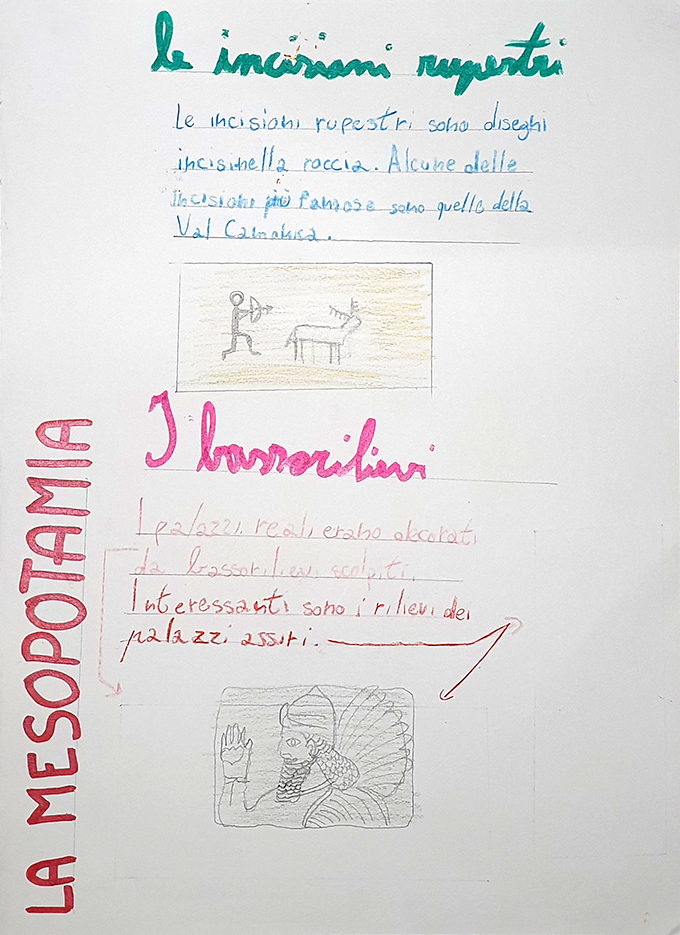 le incisioni rupestri
Le incisioni rupestri sono disegni
incisinella roccia. Alcune delle
incisioni più famose sono quelle della
Val Camonica.
I bassorilievi
I palazzi reali erano decorati
da bassorilievi scolpiti.
Interessanti sono i rilievi dei
palazzi assiri.
LA MESOPOTAMIA